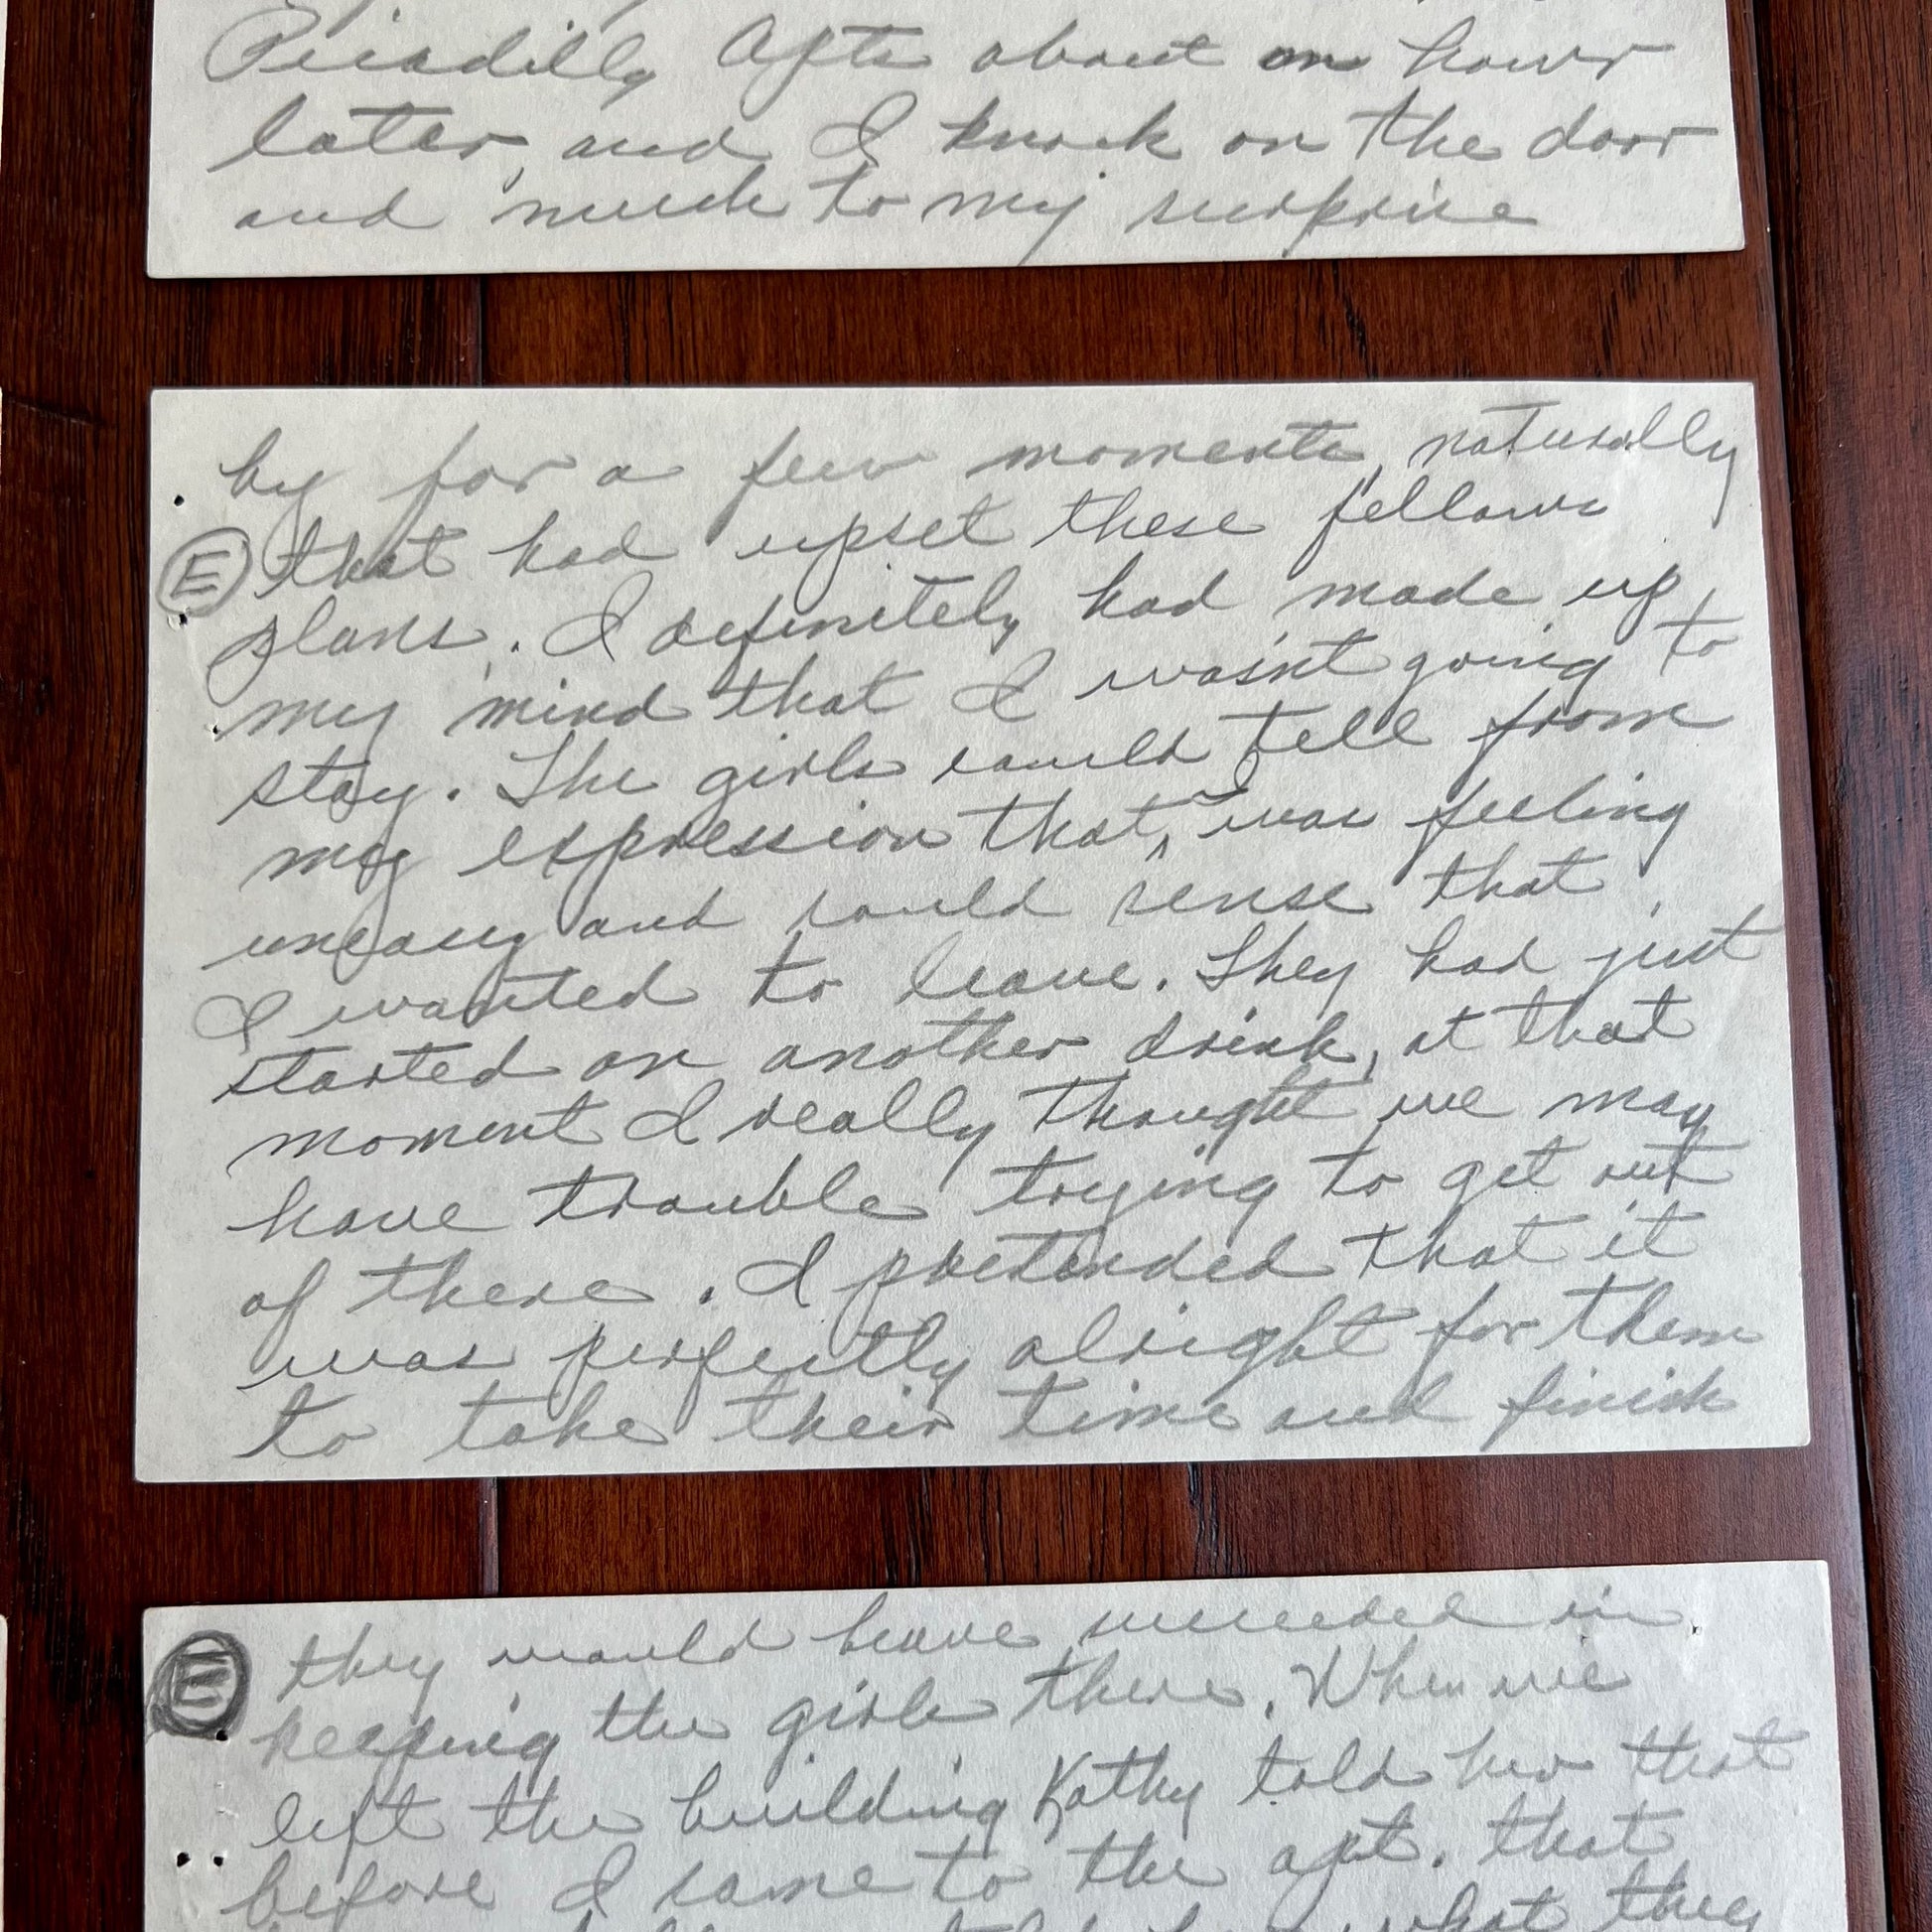 Picadilly Apts about an hour
later, and I knock on the door
and much to my surprise
by for a few moments, naturally
Ⓔ that had upset these fellows
plans. I definitely had made up
my mind that I wasn't going to
stay. The girls could tell from
my expression that I was feeling
uneasy and could sense that
I wanted to leave. They had just
started on another drink, at that
moment I really thought we may
have trouble trying to get out
of there. I pretended that it
was perfectly alright for them
to take their time and finish
Ⓔ they would have succeeded in
keeping the girls there. When we
left the building Kathy told her that
before I came to the apt. that
what they